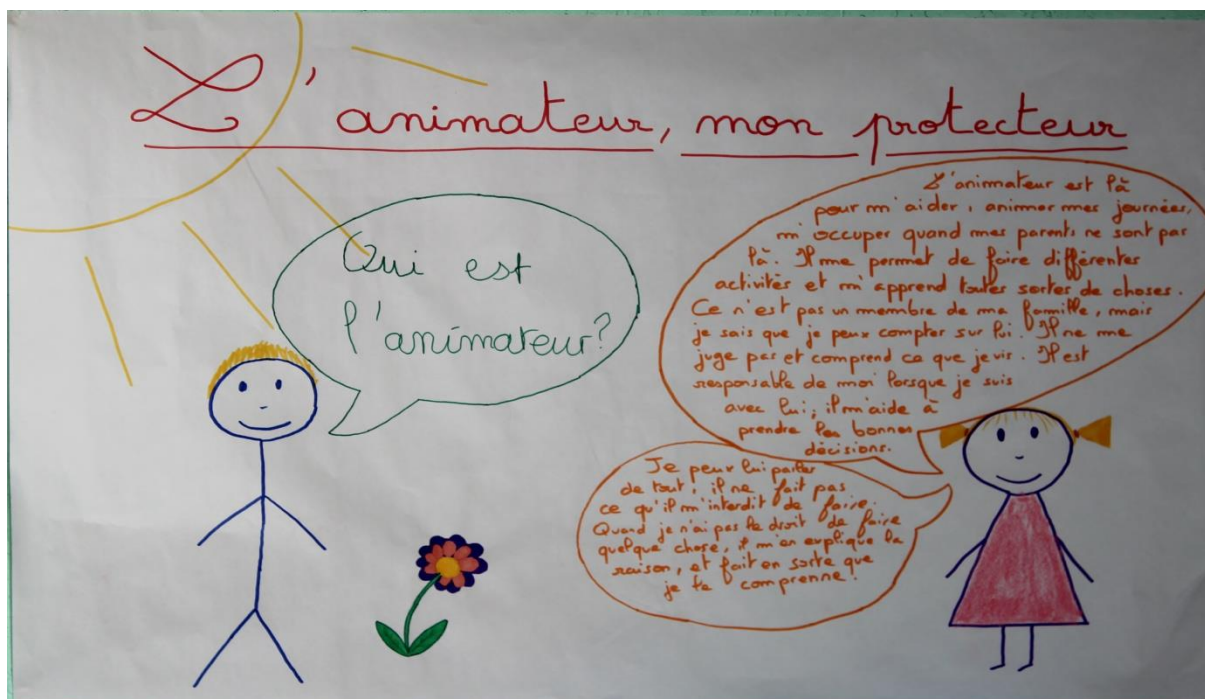 L'animateur, mon protecteur
Qui est
l'animateur?
L'animateur est là
pour m'aider, animer mes journées,
m'occuper quand mes parents ne sont pas
là. Il me permet de faire différentes
activités et m'apprend toutes sortes de choses.
Ce n'est pas un membre de ma famille, mais
je sais que je peux compter sur lui. Il ne me
juge pas et comprend ce que je vis. Il est
responsable de moi lorsque je suis
avec lui, il m'aide à
prendre les bonnes
décisions.
Je peux lui parler
de tout, il ne fait pas
ce qu'il m'interdit de faire.
Quand je n'ai pas le droit de faire
quelque chose, il m'en explique la
raison, et fait en sorte que
je le comprenne!